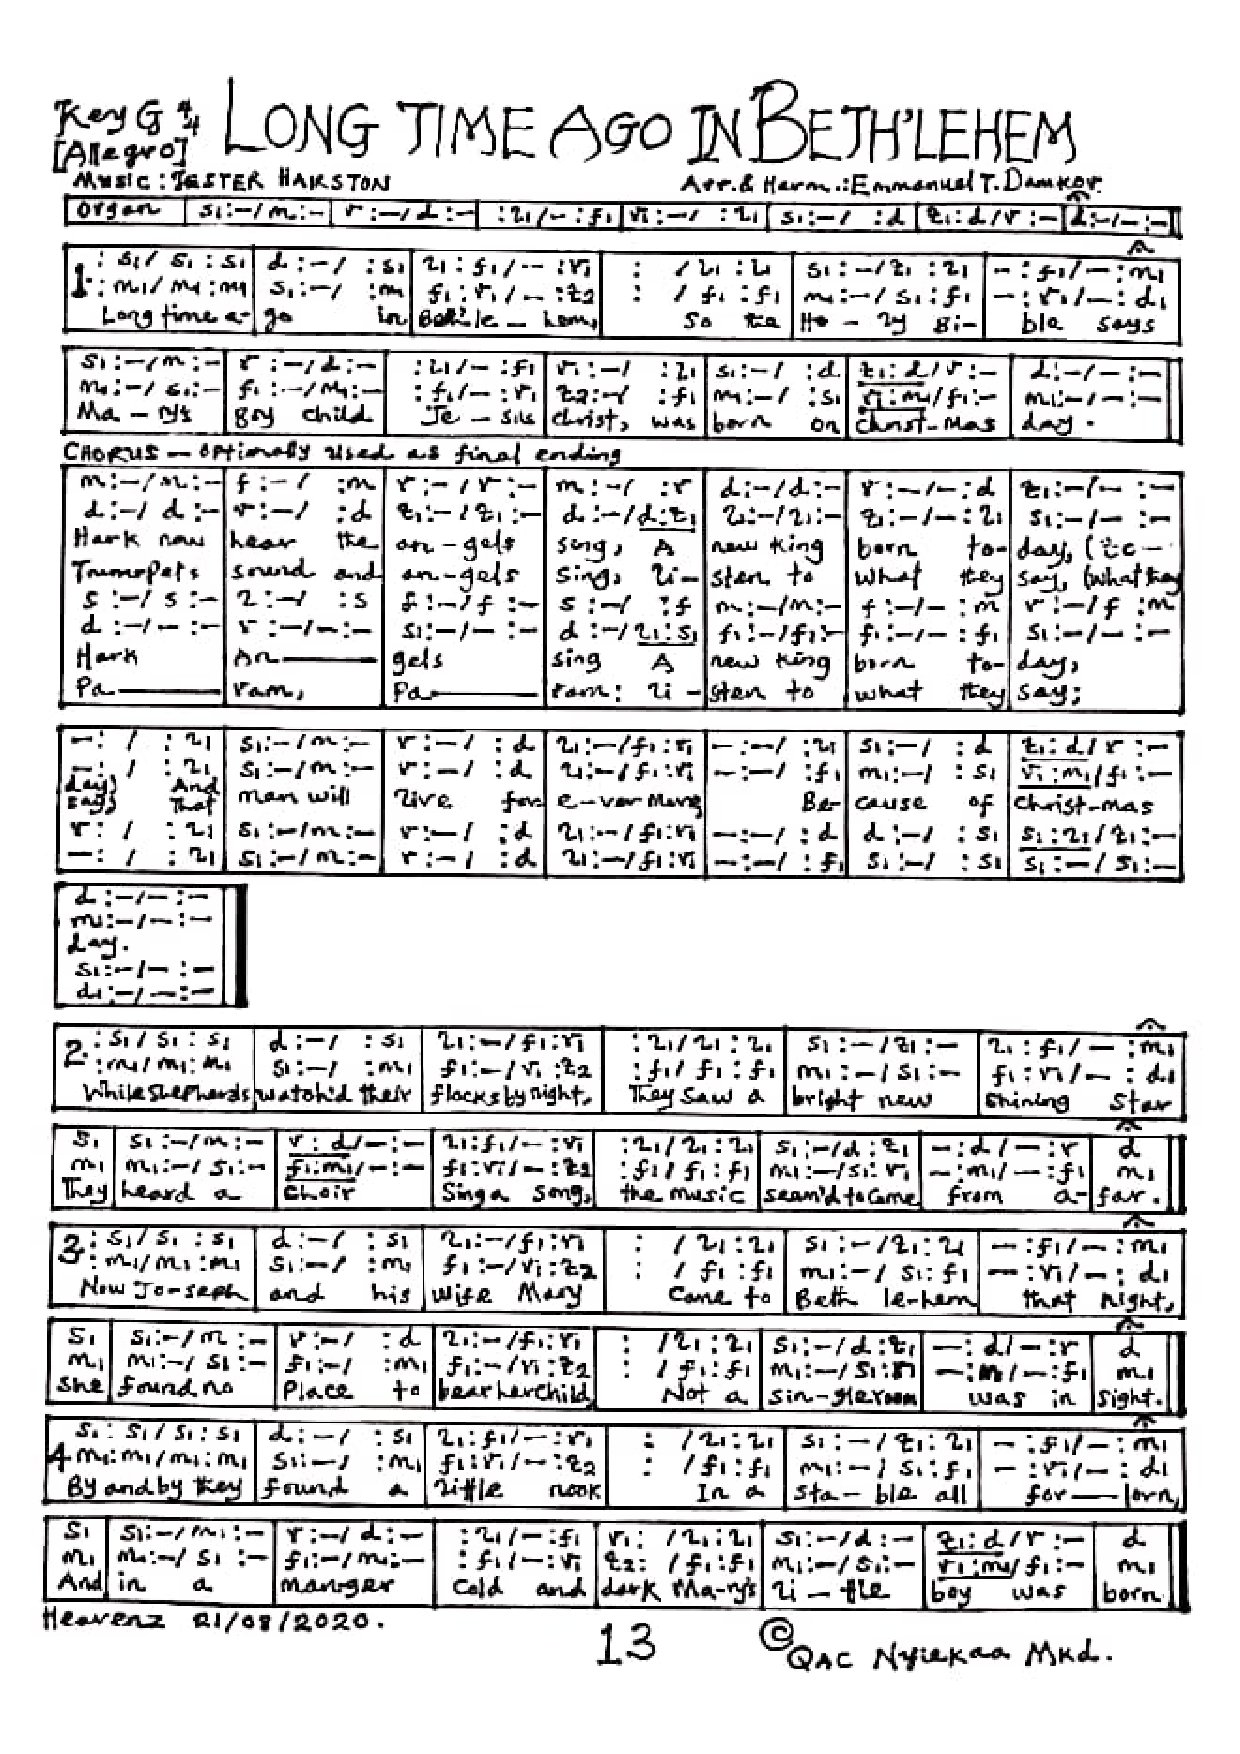 Key G 4/4 LONG TIME AGO IN BETH'LEHEM
[Allegro]
MUSIC: JESTER HAIRSTON Arr. & Harm.: Emmanuel T. Damkor.
Organ s₁:–/m:– r:–/d:– :l₁/–:f₁ r₁:–/ :l₁ s₁:–/ :d t₁:d/r:– d:–/–:–
1. :s₁/s₁:s₁ d:–/ :s₁ l₁:f₁/–:r₁ : /l₁:l₁ s₁:–/t₁:l₁ –:f₁/–:m₁
:m₁/m₁:m₁ s₁:–/ :m₁ f₁:r₁/–:t₂ : /f₁:f₁ m₁:–/s₁:f₁ –:r₁/–:d₁
Long time a- go in Beth'le-hem, So the Ho-ly Bi- ble says
s₁:–/m:– r:–/d:– :l₁/–:f₁ r₁:–/ :l₁ s₁:–/ :d t₁:d/r:– d:–/–:–
m₁:–/s₁:– f₁:–/m₁:– :f₁/–:r₁ t₂:–/ :f₁ m₁:–/ :s₁ r₁:m₁/f₁:– m₁:–/–:–
Ma-ry's boy child Je-sus Christ, was born on Christ-mas day.
CHORUS – optionally used as final ending
m:–/m:– f:–/ :m r:–/r:– m:–/ :r d:–/d:– r:–/–:d t₁:–/–:–
d:–/d:– r:–/ :d t₁:–/t₁:– d:–/d:t₁ l₁:–/l₁:– t₁:–/–:l₁ s₁:–/–:–
Hark now hear the an-gels sing, A new King born to- day, (to-
Trumpets sound and an-gels sing, li- sten to what they say, (what they
s:–/s:– l:–/ :s f:–/f:– s:–/ :f m:–/m:– f:–/–:m r:–/f:m
d:–/–:– r:–/–:– s₁:–/–:– d:–/l₁:s₁ f₁:–/f₁:– f₁:–/–:f₁ s₁:–/–:–
Hark An— gels sing A new King born to- day,
Pa— ram, Pa— ram: li- sten to what they say;
–: / :l₁ s₁:–/m:– r:–/ :d l₁:–/f₁:r₁ –:–/ :l₁ s₁:–/ :d t₁:d/r:–
–: / :l₁ s₁:–/m:– r:–/ :d l₁:–/f₁:r₁ –:–/ :f₁ m₁:–/ :s₁ r₁:m₁/f₁:–
day) And man will live for e-ver more Be- cause of Christ-mas
say) That
r: / :l₁ s₁:–/m:– r:–/ :d l₁:–/f₁:r₁ –:–/ :d d:–/ :s₁ s₁:l₁/t₁:–
–: / :l₁ s₁:–/m:– r:–/ :d l₁:–/f₁:r₁ –:–/ :f₁ s₁:–/ :s₁ s₁:–/s₁:–
d:–/–:–
m₁:–/–:–
day.
s₁:–/–:–
d₁:–/–:–
2. :s₁/s₁:s₁ d:–/ :s₁ l₁:–/f₁:r₁ :l₁/l₁:l₁ s₁:–/t₁:– l₁:f₁/–:m₁
:m₁/m₁:m₁ s₁:–/ :m₁ f₁:–/r₁:t₂ :f₁/f₁:f₁ m₁:–/s₁:– f₁:r₁/–:d₁
While shepherds watch'd their flocks by night, They saw a bright new shining star
s₁ s₁:–/m:– r:d/–:– l₁:f₁/–:r₁ :l₁/l₁:l₁ s₁:–/d:t₁ –:d/–:r d
m₁ m₁:–/s₁:– f₁:m₁/–:– f₁:r₁/–:t₂ :f₁/f₁:f₁ m₁:–/s₁:r₁ –:m₁/–:f₁ m₁
They heard a Choir Sing a song, the music seam'd to come from a- far.
3. :s₁/s₁:s₁ d:–/ :s₁ l₁:–/f₁:r₁ : /l₁:l₁ s₁:–/t₁:l₁ –:f₁/–:m₁
:m₁/m₁:m₁ s₁:–/ :m₁ f₁:–/r₁:t₂ : /f₁:f₁ m₁:–/s₁:f₁ –:r₁/–:d₁
Now Jo-seph and his wife Mary Came to Beth le-hem that night,
s₁ s₁:–/m:– r:–/ :d l₁:–/f₁:r₁ : /l₁:l₁ s₁:–/d:t₁ –:d/–:r d
m₁ m₁:–/s₁:– f₁:–/ :m₁ f₁:–/r₁:t₂ : /f₁:f₁ m₁:–/s₁:r₁ –:m/–:f₁ m₁
She found no Place to bear her child, Not a sin-gle room was in Sight.
4 s₁:s₁/s₁:s₁ d:–/ :s₁ l₁:f₁/–:r₁ : /l₁:l₁ s₁:–/t₁:l₁ –:f₁/–:m₁
m₁:m₁/m₁:m₁ s₁:–/ :m₁ f₁:r₁/–:t₂ : /f₁:f₁ m₁:–/s₁:f₁ –:r₁/–:d₁
By and by they found a little nook In a sta-ble all for—lorn,
s₁ s₁:–/m₁:– r:–/d:– :l₁/–:f₁ r₁: /l₁:l₁ s₁:–/d:– t₁:d/r:– d
m₁ m₁:–/s₁:– f₁:–/m₁:– :f₁/–:r₁ t₂: /f₁:f₁ m₁:–/s₁:– r₁:m₁/f₁:– m₁
And in a manger Cold and dark Ma-ry's li-ttle boy was born
Heavenz 21/08/2020.
13 © QAC Nyiekaa Mkd.